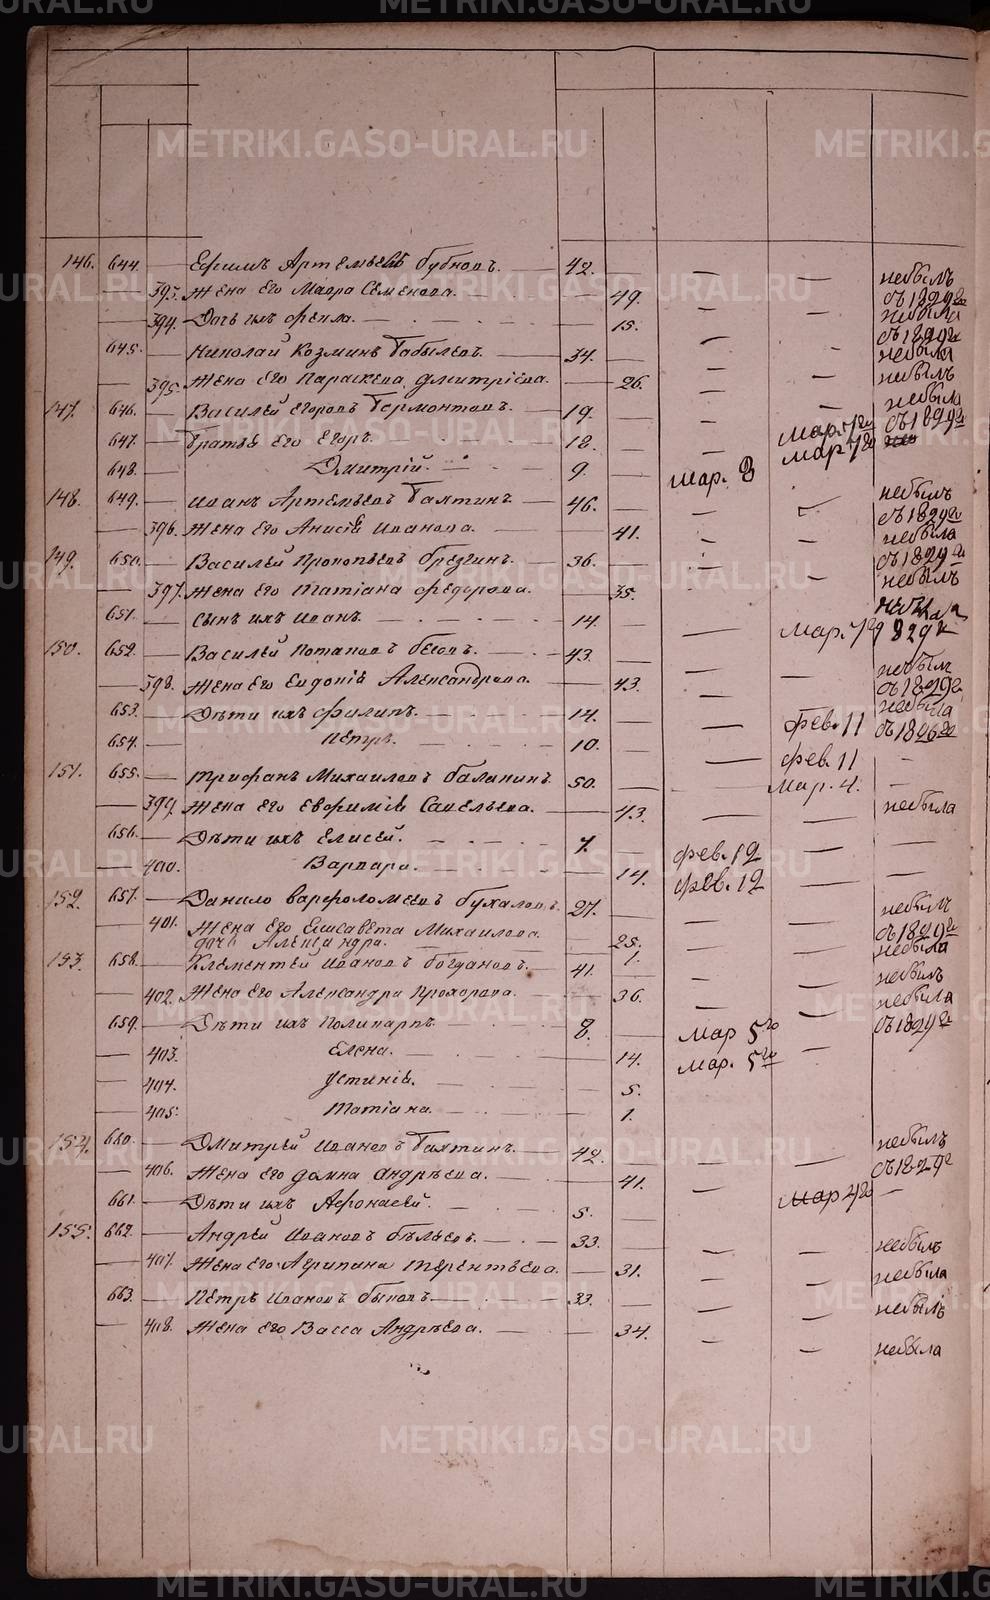 METRIKI.GASO-URAL.RU
146. 644. — Ефимъ Артемьевъ Бубновъ. — 42. — — — небылъ
съ 1829го
— 393. Жена его Мавра Семенова. — 49. — — небыла
съ 1829го
— 394. Дочь ихъ Фекла. — 15. — — небыла
645. — Николай Козминъ Бабылевъ. — 34. — — небылъ
— 395. Жена его Параскева Дмитріева. — 26. — — небыла
147. 646. — Василей Егоровъ — 19. — — мар. 7го съ 1829го
647. — Братья его Егоръ. — 12. — — мар 7го
648. — Дмитрій. — 9. — мар. 8
148. 649. — Иванъ Артемьевъ — 46. — — небылъ
съ 1829го
— 396. Жена его Анисія Иванова. — 41. — — небыла
съ 1829го
149. 650. — Василей Прокопьевъ Брезгинъ. — 36. — — небылъ
— 397. Жена его Татіана Федорова. — 35. — —
651. — Сынъ ихъ Иванъ. — 14. — — мар. 7го
150. 652. — Василей Потаповъ — 43. — — небылъ
съ 1829го
— 398. Жена его Евдокія Александрова. — 43. — — небыла
съ 1826го
653. — Дѣти ихъ Филипъ. — 14. — — фев. 11
654. — Петръ. — 10. — — фев. 11 —
151. 655. — Трифанъ Михаиловъ Балакинъ. 50. — — мар. 4.
— 399. Жена его Евфимія Савельева. — 43. — — небыла
656. — Дѣти ихъ Елисей. — 7. — фев. 12 — —
— 400. Варвара. — 14. фев. 12 — —
152. 657. — Данило Варфоломеевъ Бухаловъ. 27. — — — небылъ
съ 1829го
— 401. Жена его Елисавета Михаилова. — 25. — — небыла
дочь Александра. — 1.
153. 658. — Клементей Ивановъ Богдановъ. — 41. — — — небылъ
— 402. Жена его Александра Прохорова. — 36. — — небыла
съ 1829го
659. — Дѣти ихъ Поликарпъ. — 8. — мар 5го —
— 403. Елена. — 14. мар. 5го —
— 404. Устинія. — 5.
— 405. Татіана. — 1.
154. 660. — Дмитрей Ивановъ — 42. — — — небылъ
съ 1829го
— 406. Жена его Домна Андрѣева. — 41. — мар 4го —
661. — Дѣти ихъ Афонасей. — 5. —
155. 662. — Андрей Ивановъ Бѣльевъ. — 33. — — — небылъ
— 407. Жена его Агрипина Терентьева. — 31. — — небыла
663. — Петръ Ивановъ Быковъ. — 33. — — — небылъ
— 408. Жена его Васса Андрѣева. — 34. — — небыла